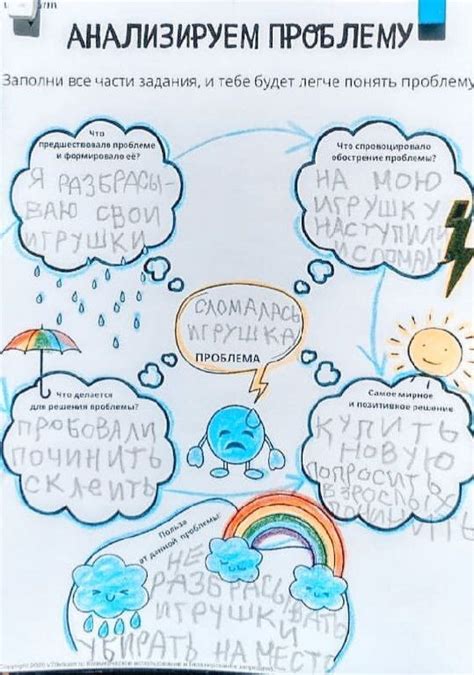 АНАЛИЗИРУЕМ ПРОБЛЕМУ
Заполни все части задания, и тебе будет легче понять проблему
Что
предшествовало проблеме
и формировало её?
Я РАЗБРАСЫ-
ВАЮ СВОИ
ИГРУШКИ
Что спровоцировало
обострение проблемы?
НА МОЮ
ИГРУШКУ
НАСТУПИЛИ
И СЛОМАЛ
СЛОМАЛАСЬ
ИГРУШКА
ПРОБЛЕМА
Что делается
для решения проблемы?
ПРОБОВАЛИ
ПОЧИНИТЬ
СКЛЕИТЬ
Самое мирное
и позитивное решение
КУПИТЬ
НОВУЮ
ПОПРОСИТЬ
ВЗРОСЛЫХ
ПОЧИНИТЬ
Польза
от данной проблемы:
НЕ
РАЗБРАСЫВАТЬ
ИГРУШКИ
УБИРАТЬ НА МЕСТО